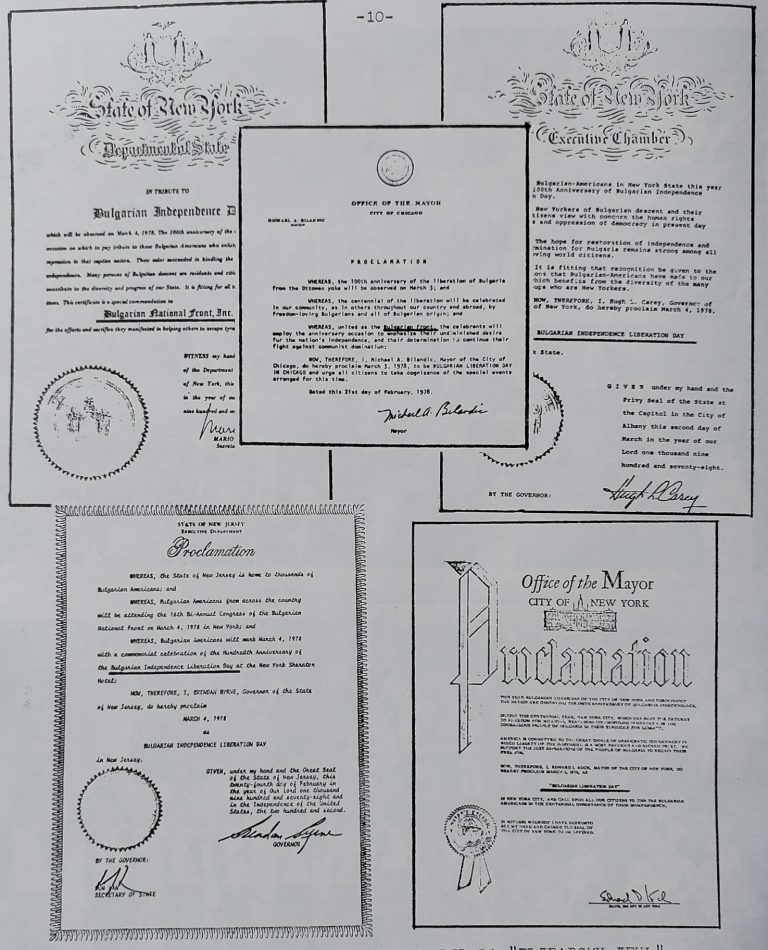 -10-
State of New York
Department of State
IN TRIBUTE TO
Bulgarian Independence D
which will be observed on March 4, 1978. The 100th anniversary of the
occasion on which to pay tribute to those Bulgarian Americans who
repression in that captive nation. These succeeded in kindling the
independence. Many persons of Bulgarian descent are residents and citi
contribute to the diversity and progress of our State. It is fitting for all
tions. This certificate is a special commendation to
Bulgarian National Front, Inc.
for the efforts and sacrifice they manifested in helping others to escape tyra
WITNESS my hand
of the Department
of New York, this
in the year of ou
nine hundred and se
MARIO
Secreta
OFFICE OF THE MAYOR
CITY OF CHICAGO
MICHAEL A. BILANDIC
MAYOR
PROCLAMATION
WHEREAS, the 100th anniversary of the liberation of Bulgaria
from the Ottoman yoke will be observed on March 3; and
WHEREAS, the centennial of the liberation will be celebrated
in our community, as in others throughout our country and abroad, by
freedom-loving Bulgarians and all of Bulgarian origin; and
WHEREAS, united as the Bulgarian Front, the celebrants will
employ the anniversary occasion to emphasize their undiminished desire
for the nation's independence, and their determination to continue their
fight against communist domination:
NOW, THEREFORE, I, Michael A. Bilandic, Mayor of the City of
Chicago, do hereby proclaim March 3, 1978, to be BULGARIAN LIBERATION DAY
IN CHICAGO and urge all citizens to take cognizance of the special events
arranged for this time.
Dated this 21st day of February, 1978.
Michael A. Bilandic
Mayor
State of New York
Executive Chamber
Bulgarian-Americans in New York State this year
100th Anniversary of Bulgarian Independence
n Day.
New Yorkers of Bulgarian descent and their
tizens view with concern the human rights
s and oppression of democracy in present day
The hope for restoration of independence and
mination for Bulgaria remains strong among all
oving world citizens.
It is fitting that recognition be given to the
ons that Bulgarian-Americans have made to our
hich benefits from the diversity of the many
ups who are New Yorkers.
NOW, THEREFORE, I, Hugh L. Carey, Governor of
of New York, do hereby proclaim March 4, 1978,
BULGARIAN INDEPENDENCE LIBERATION DAY
k State.
GIVEN under my hand and the
Privy Seal of the State at
the Capitol in the City of
Albany this second day of
March in the year of our
Lord one thousand nine
hundred and seventy-eight.
BY THE GOVERNOR:
Hugh L Carey
STATE OF NEW JERSEY
EXECUTIVE DEPARTMENT
Proclamation
WHEREAS, the State of New Jersey is home to thousands of
Bulgarian Americans; and
WHEREAS, Bulgarian Americans from across the country
will be attending the 16th Bi-Annual Congress of the Bulgarian
National Front on March 4, 1978 in New York; and
WHEREAS, Bulgarian Americans will mark March 4, 1978
with a commemorial celebration of the Hundredth Anniversary of
the Bulgarian Independence Liberation Day at the New York Sheraton
Hotel;
NOW, THEREFORE, I, BRENDAN BYRNE, Governor of the State
of New Jersey, do hereby proclaim
MARCH 4, 1978
as
BULGARIAN INDEPENDENCE LIBERATION DAY
in New Jersey.
GIVEN, under my hand and the Great Seal
of the State of New Jersey, this
twenty-fourth day of February in
the year of Our Lord one thousand
nine hundred and seventy-eight and
in the Independence of the United
States, the two hundred and second.
Brendan Byrne
GOVERNOR
BY THE GOVERNOR:
SECRETARY OF STATE
Office of the Mayor
CITY OF NEW YORK
Proclamation
AMERICA IS COMMITTED TO THE GREAT IDEALS OF DEMOCRATIC GOVERNMENT IN
NOW, THEREFORE, I, EDWARD I. KOCH, MAYOR OF THE CITY OF NEW YORK, DO
HEREBY PROCLAIM MARCH 4, 1978, AS
"BULGARIAN LIBERATION DAY"
IN NEW YORK CITY, AND CALL UPON ALL OUR CITIZENS TO JOIN THE BULGARIAN
AMERICANS IN THE CENTENNIAL OBSERVANCE OF THEIR INDEPENDENCE.
IN WITNESS WHEREOF I HAVE HEREUNTO
SET MY HAND AND CAUSED THE SEAL OF
THE CITY OF NEW YORK TO BE AFFIXED.